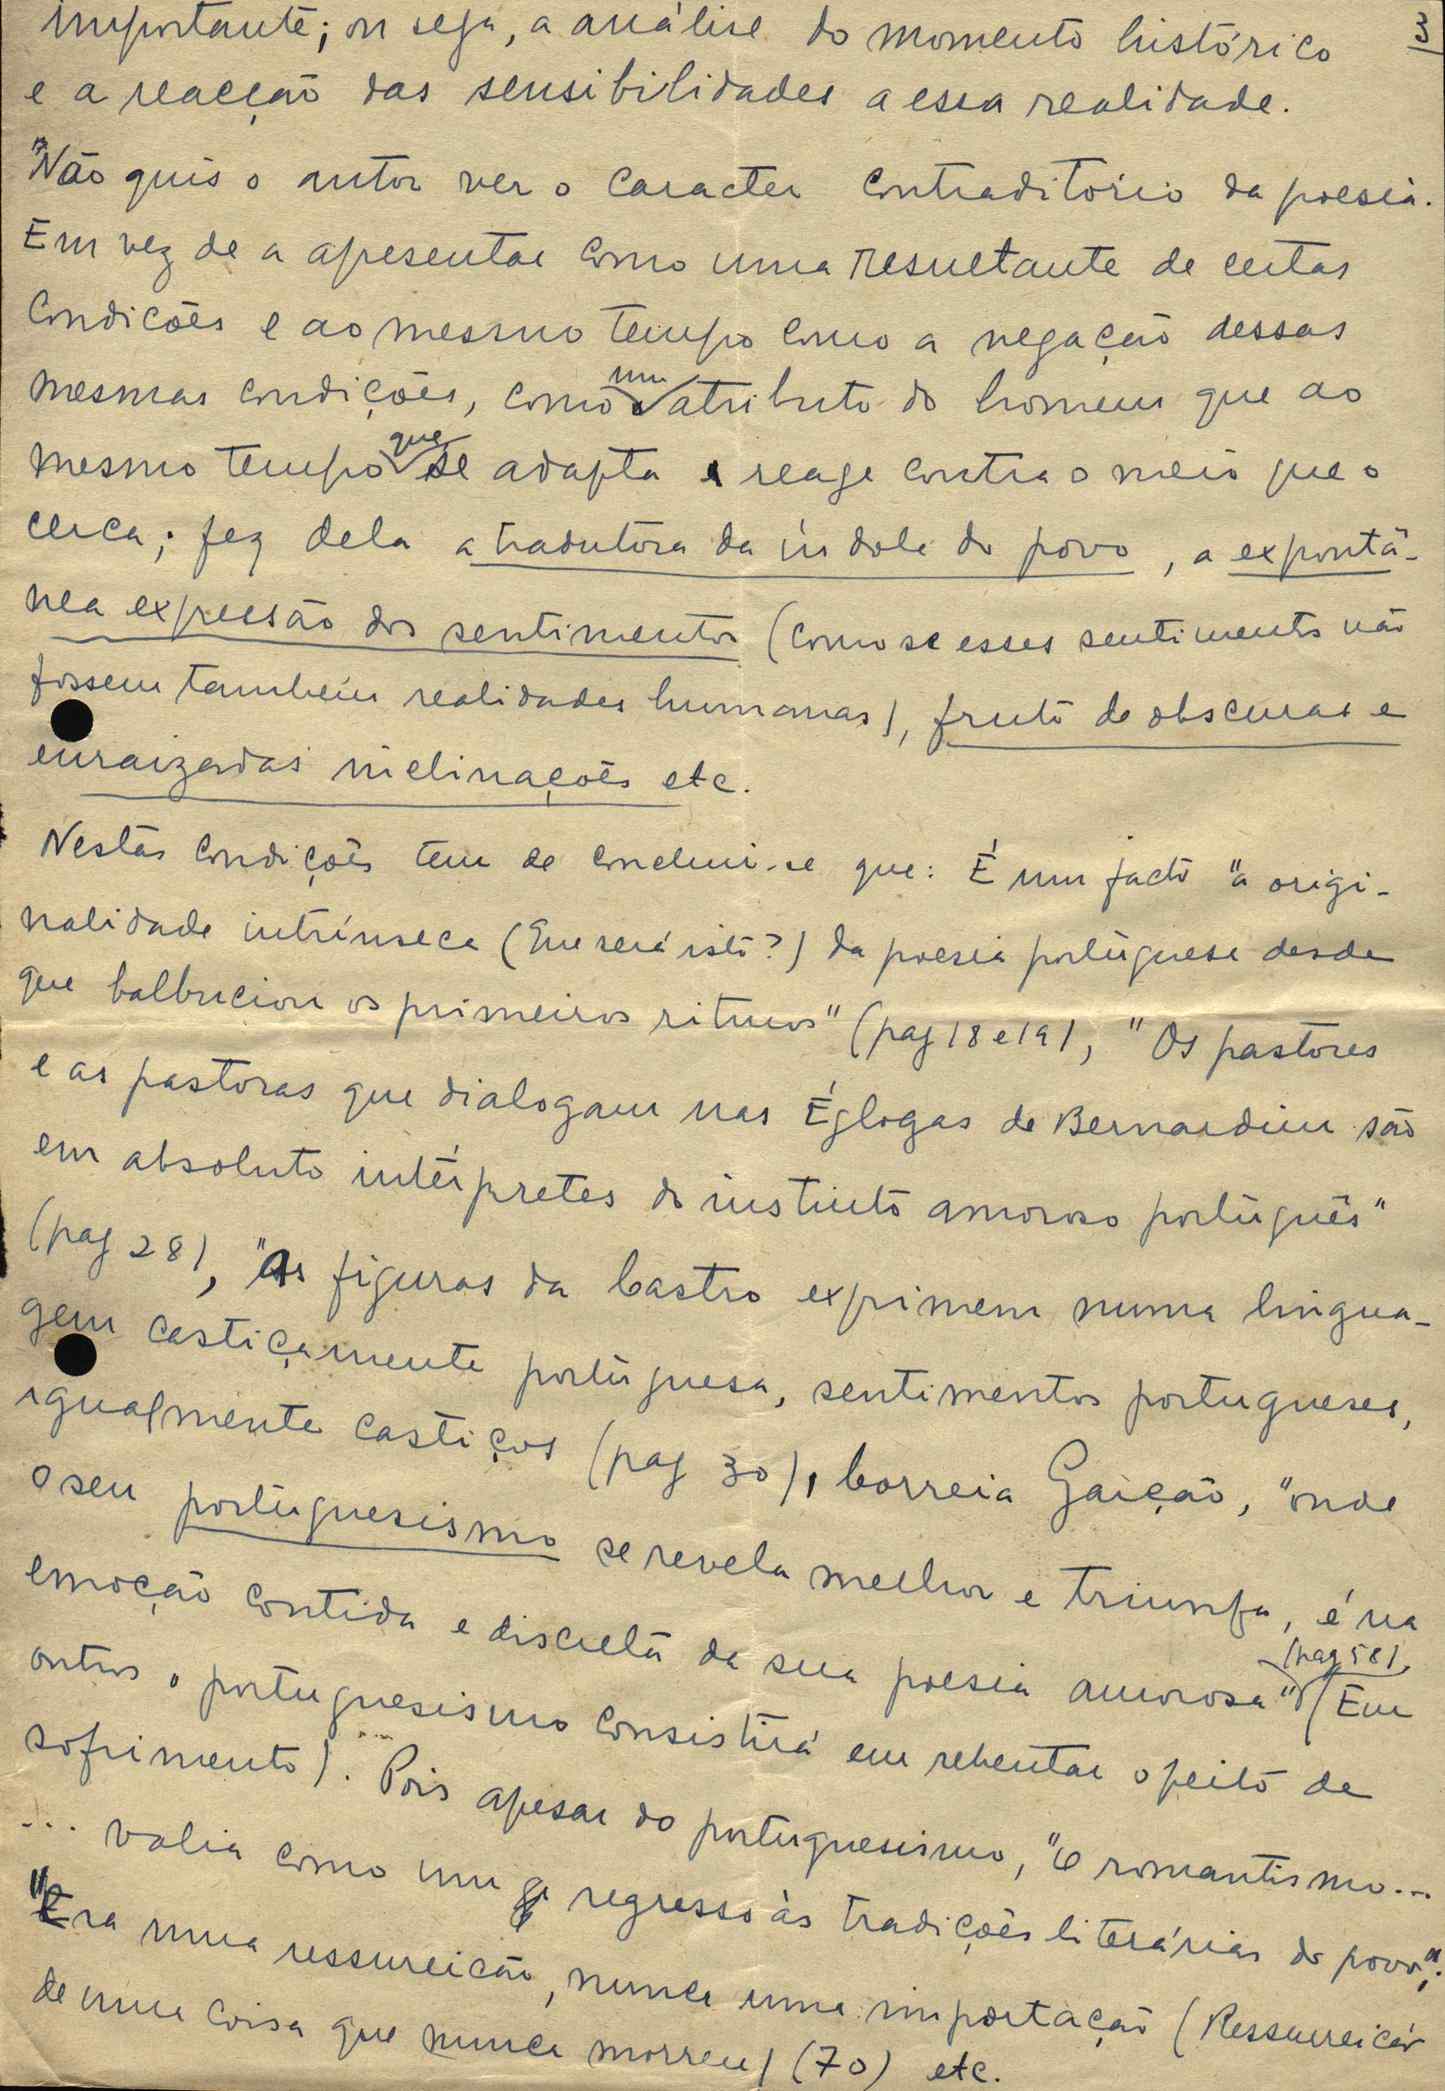 3
importante; ou seja, a análise do momento histórico
e a reacção das sensibilidades a essa realidade.
"Não quis o autor ver o caracter contraditório da poesia.
Em vez de a apresentar como uma resultante de certas
condições e ao mesmo tempo como a negação dessas
mesmas condições, como um atributo do homem que ao
mesmo tempo que se adapta e reage contra o meio que o
cerca; fez dela a tradutora da índole do povo, a expontâ-
nea expressão dos sentimentos (como se esses sentimentos não
fossem também realidades humanas), fruto de obscuras e
enraizadas inclinações etc.
Nestas condições tem de concluir-se que: É um facto "a origi-
nalidade intrínseca (Que será isto?) da poesia portuguesa desde
que balbuciou os primeiros ritmos" (pag 18 e 19), "Os pastores
e as pastoras que dialogam nas Églogas de Bernardim são
em absoluto intérpretes do instinto amoroso português"
(pag 28), "As figuras da Castro exprimem numa lingua-
gem castiçamente portuguesa, sentimentos portugueses,
igualmente castiços (pag 30), Correia Garção, "onde
o seu portuguesismo se revela melhor e triunfa, é na
emoção contida e discreta da sua poesia amorosa" (pag 58). (Em
outros o portuguesismo consistirá em rebentar o peito de
sofrimento). Pois apesar do portuguesismo, "O romantismo...
... valia como um regresso às tradições literárias do povo";
"Era uma ressureicão, nunca uma importação (Ressureicão
de uma coisa que nunca morreu) (70) etc.